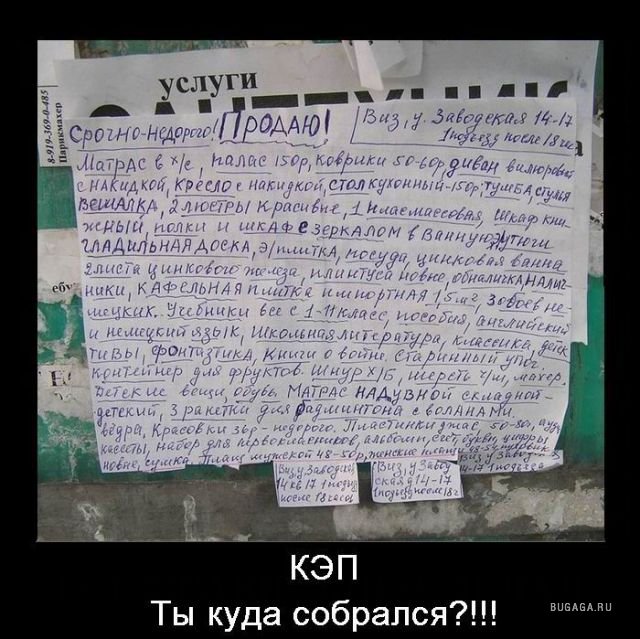 услуги
8-919-369-0-485
Парикмахер
Срочно-недорого! ПРОДАЮ!
Виз, у. Заводская 14-17
1 подъезд после 18 час
Матрас в х/с, палас 150р, коврики 50-60р, диван велюровый
с накидкой, кресло с накидкой, стол кухонный-150р, тумба, стулья
вешалка, 2 люстры красивые, 1 пласмассовая, шкаф кни
жный, полки и шкаф с зеркалом в ванную, утюги
гладильная доска, э/плитка, посуда, цинковая ванна
2 листа цинкового железа, плинтуса новые, обналичка налич
ники, кафельная плитка импортная 1,5 м2 3 обоев не
мецких. Учебники все с 1-11 класс, пособия, английский
и немецкий язык, школьная литература, классика, детек
тивы, фонтазтика, книги о войне. Старинный утюг.
контейнер для фруктов. Шнур х/б, шерсть ч/ш, махер.
Детские вещи, обувь. Матрас надувной складной-
детский, 3 ракетки для бадминтона с воланами.
вёдра, красовки 3ьр-недорого. Пластинки джас, 50-80г, ауди
кассеты, набор для первоклассников, альбомы, счёт, буквы, цифры
новые, сумка. Плащ мужской 48-50р, женские плащи 48-54
Виз, у Заводской
14 кв 17 1 подъезд
после 18 часов
Виз, у Завод
ская 14-17
1 подъезд после 18 ч
Виз, у Завод
14-17 1 подъезд
КЭП
Ты куда собрался?!!!
BUGAGA.RU